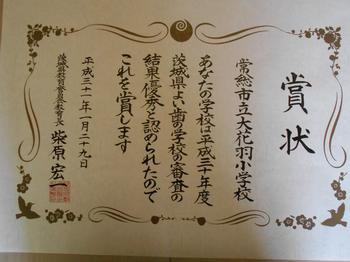 賞状
常総市立大花羽小学校
あなたの学校は平成三十年度
茨城県よい歯の学校の審査の
結果優秀と認められたので
これを賞します
平成三十一年一月二十九日
茨城県教育委員会教育長 柴原宏一